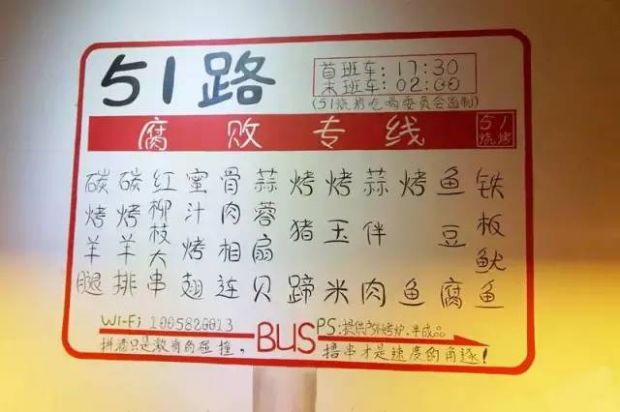 51路
首班车:17:30
末班车:02:00
(51烧烤吃喝委员会监制)
腐败专线
51
烧烤
碳烤羊腿
碳烤羊排
红柳枝大串
蜜汁烤翅
骨肉相连
蒜蓉扇贝
烤猪蹄
烤玉米
蒜伴肉
烤鱼
鱼豆腐
铁板鱿鱼
Wi-Fi 1005820013
拼酒只是激情的碰撞,
BUS
PS:提供户外烤炉,半成品
撸串才是速度的角逐!